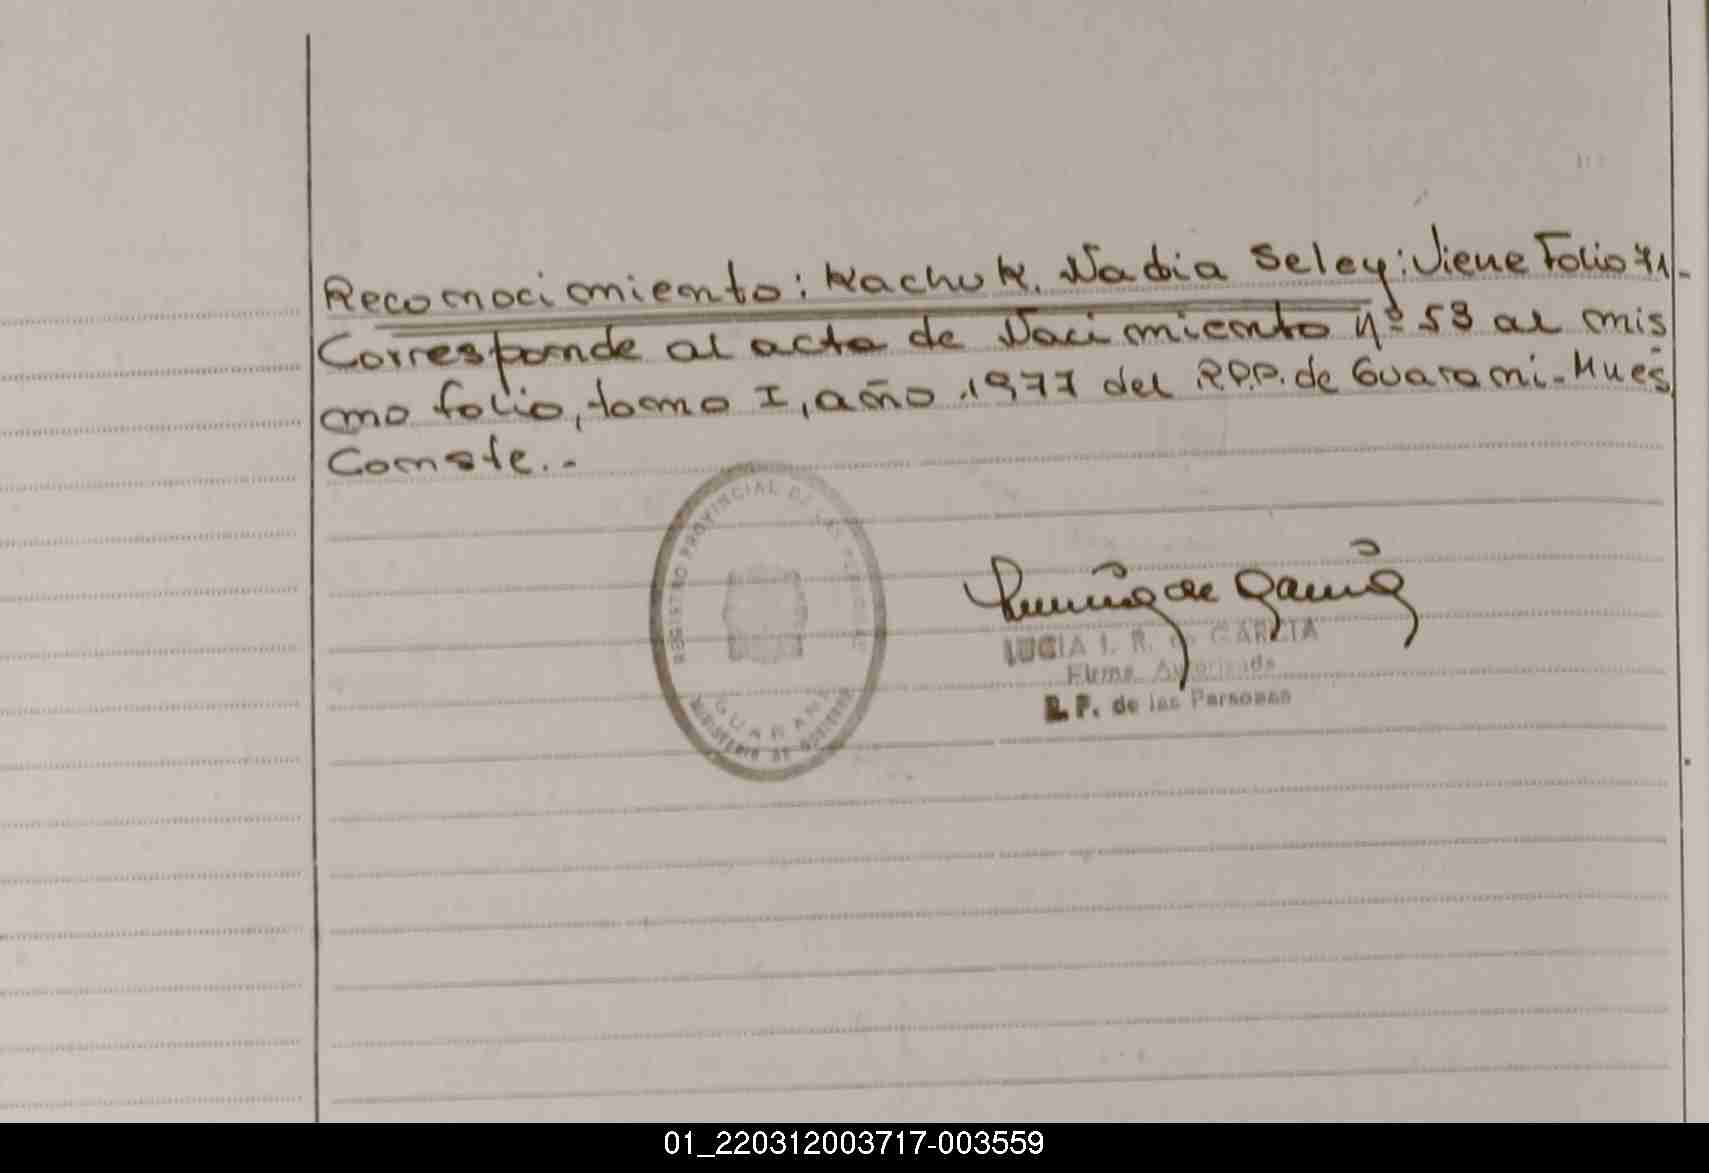 Reconocimiento: Kachuk. Nadia Seley: Viene Folio 71.-
Corresponde al acta de Nacimiento nº 53 al mis
mo folio, tomo I, año 1977 del R.P.P. de Guarani-Mnes
Conste.-
REGISTRO PROVINCIAL DE LAS PERSONAS
GUARANI
MINISTERIO DE GOBIERNO
LUCIA I. R. de GARCIA
Firma Autorizada
R. P. de las Personas
01_220312003717-003559